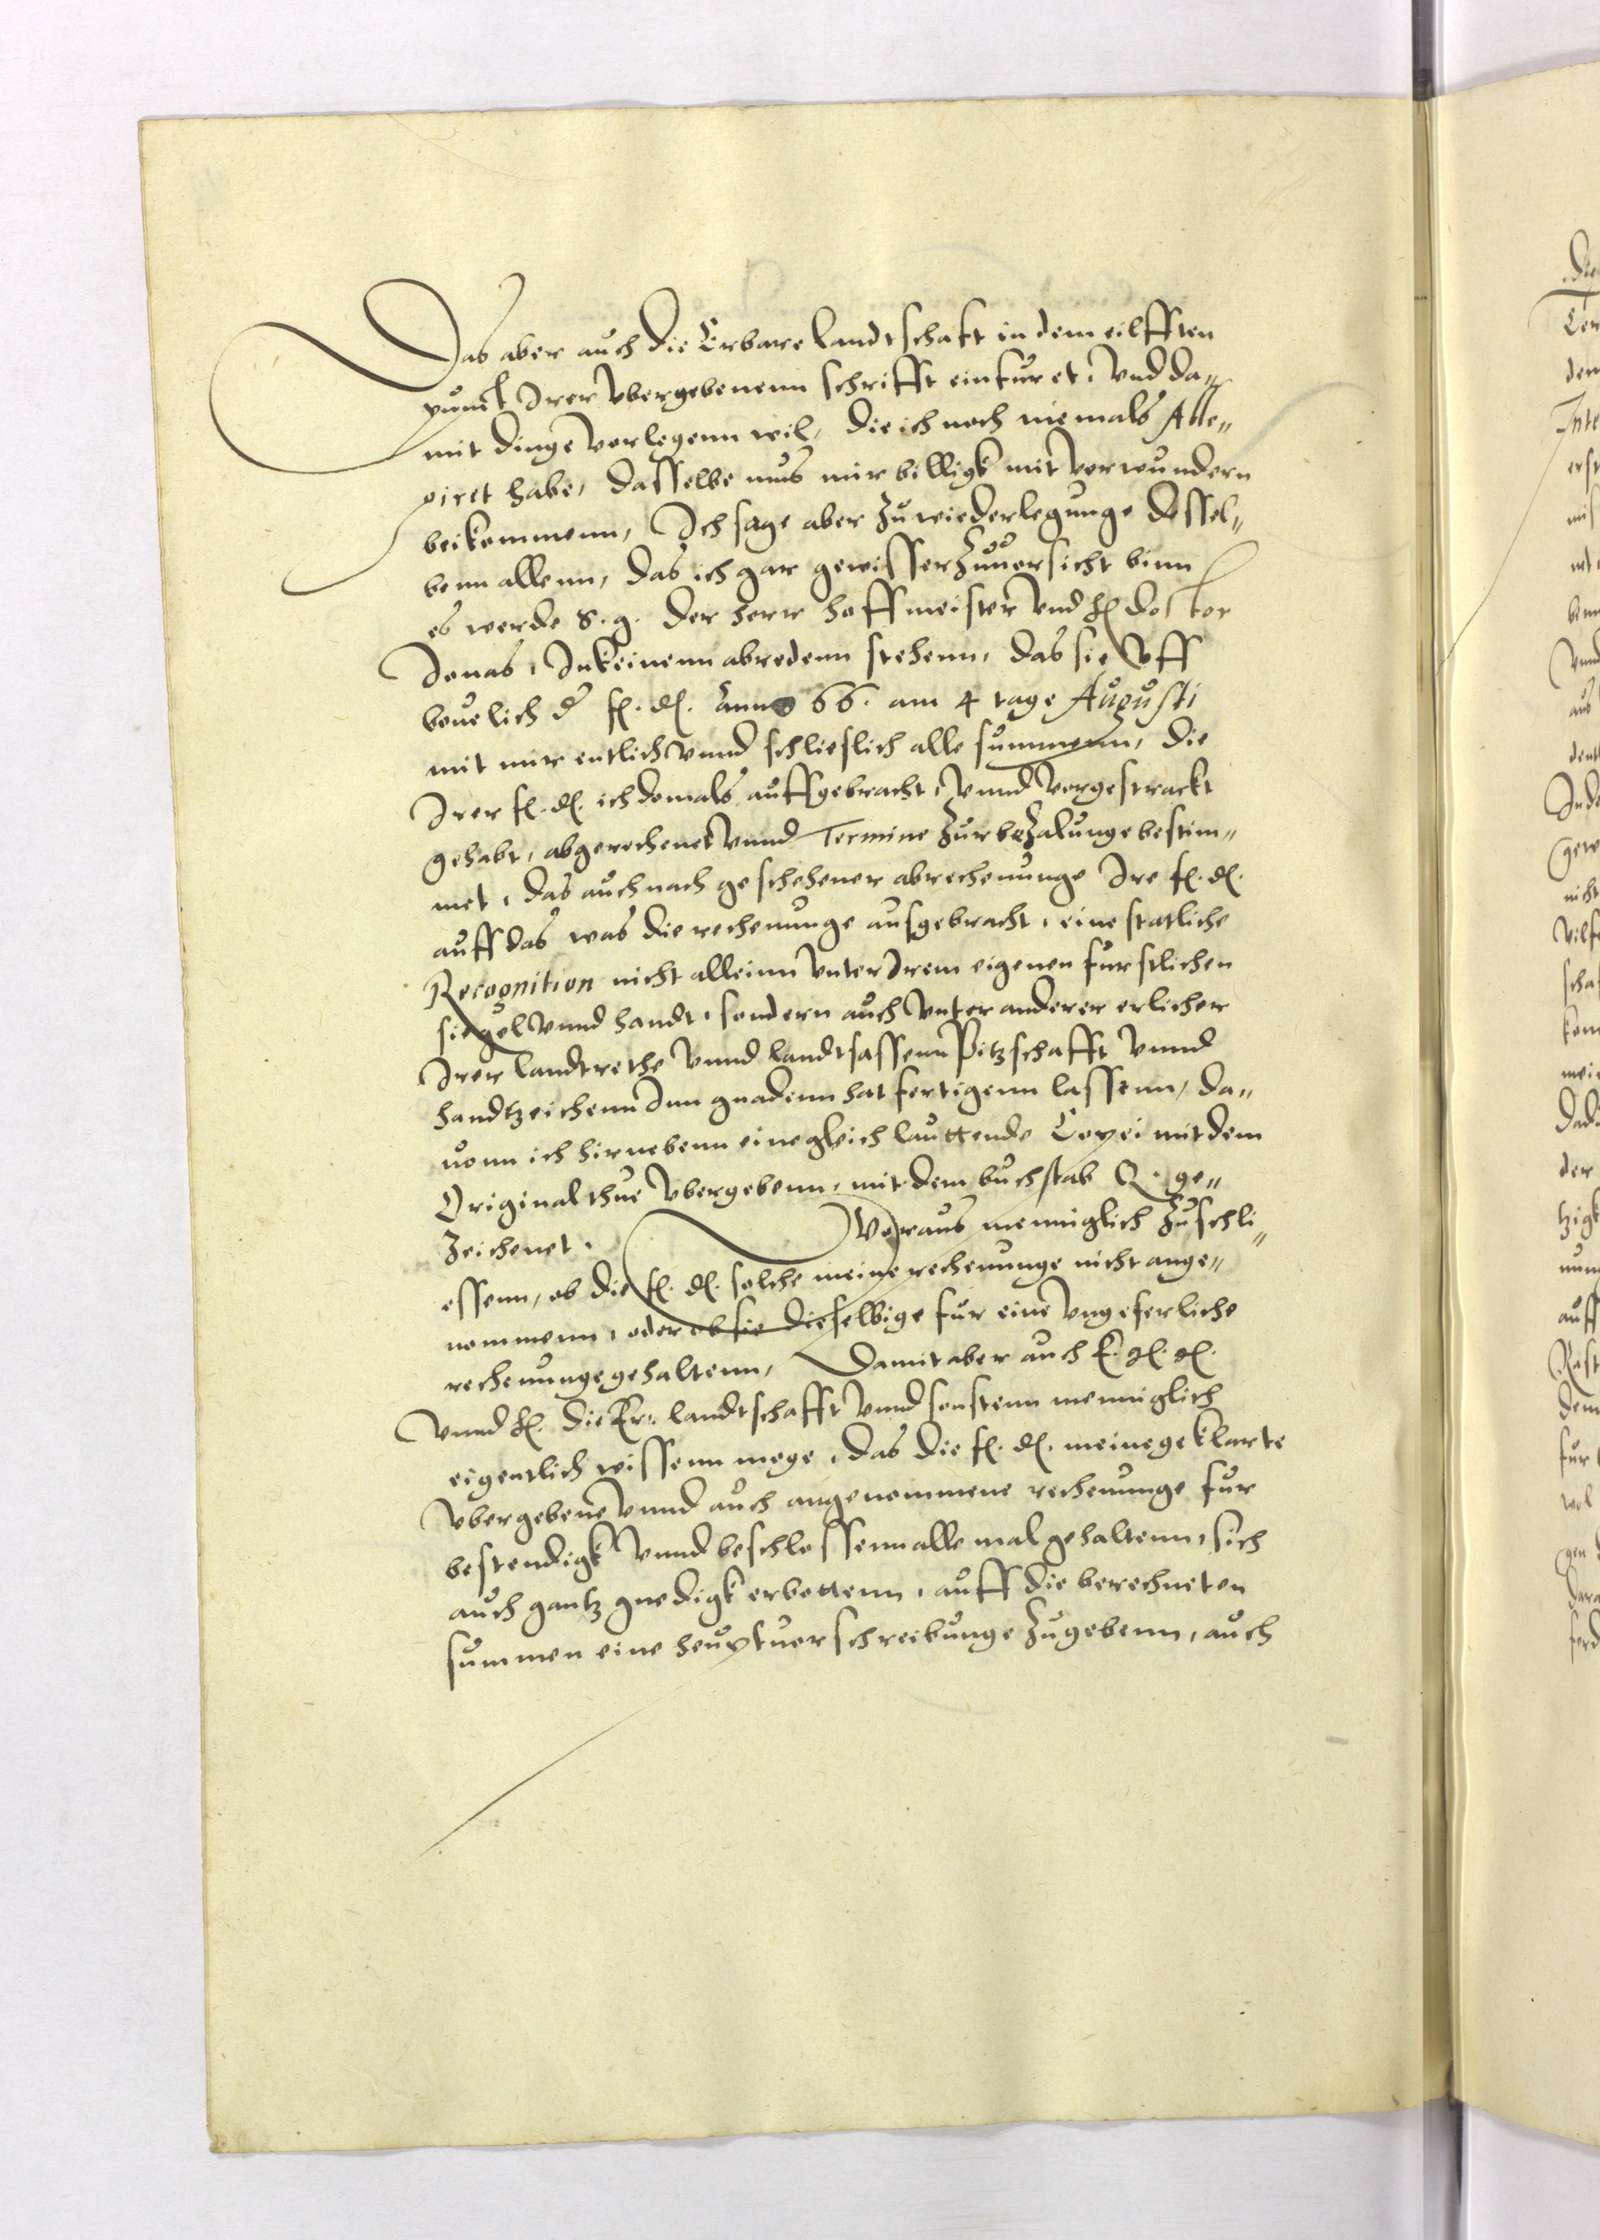 Das aber auch die Erbare landtschaft in dem eilfften
punct Irer vbergebenenn schrifft einfuret, vnd da=
mit dinge verlegenn wil, die ich noch niemals Alle=
giret habe, dasselbe mus mir billigk mit verwundern
beikommenn, Ich sage aber zu wiederlegunge dessel=
benn allenn, das ich gar gewisser zuuersicht binn
es werde S. g. der herr hoffmeister vnd H doctor
Jonas, In keinenn abredenn stehenn, das sie vff
beuelich d f. d. Anno 66. am 4 tage Augusti
mit mir entlich vnnd schlieslich alle summenn, die
Irer f. d. ich domals auffgebracht, vnnd vorgestrackt
gehabt, abgerechenet vnnd Termine zur bezalunge bestim=
met, das auch nach geschehener abrechenunge Ire f. d.
auff das was die rechenunge ausgebracht, eine statliche
Recognition nicht alleinn vnter Irem eigenen furstlichen
siegel vnnd handt, sondern auch vnter anderer erlicher
Irer landtrethe vnnd landtsassenn Pitzschafft vnnd
handtzeichenn Inn gnadenn hat fertigenn lassenn, da=
uonn ich hirnebenn eine gleich lauttende Copei mit dem
Original thue vbergebenn, mit dem buchstab Q. ge=
zeichenet. Woraus menniglich zuschli=
essenn, ob die f. d. solche meine rechenunge nicht ange=
nommenn, oder ob sie dieselbige fur eine vngeferliche
rechenunge gehaltenn, Damit aber auch
vnnd H. die Er. landtschafft vnnd sonstenn menniglich
eigentlich wissenn moge, das die f. d. meine geklarte
vbergebene vnnd auch angenommene rechenunge fur
bestendigk vnnd beschlossenn alle mal gehaltenn, sich
auch gantz gnedigk erbottenn, auff die berechneten
summen eine heuptuerschreibunge zugebenn, auch